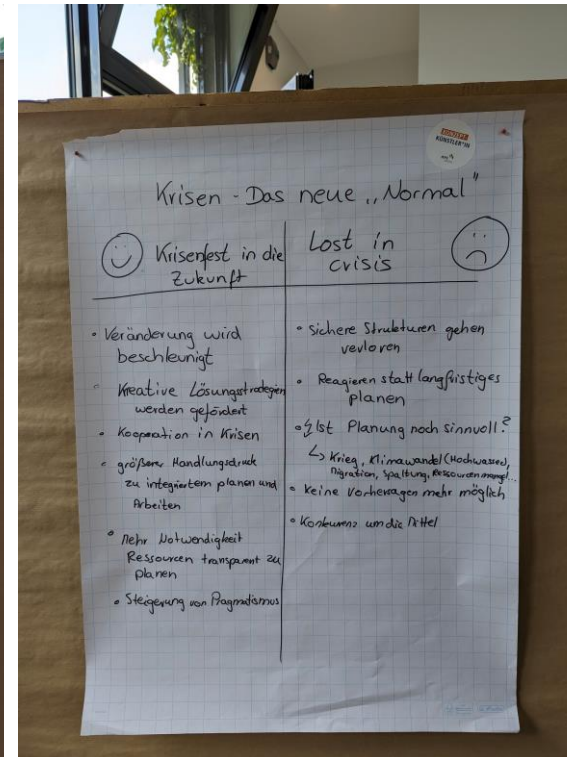 KONZEPT
KÜNSTLER*IN
Krisen - Das neue „Normal"
Krisenfest in die
Zukunft
• Veränderung wird
beschleunigt
• Kreative Lösungsstrategien
werden gefördert
• Kooperation in Krisen
• größerer Handlungsdruck
zu integriertem planen und
Arbeiten
• mehr Notwendigkeit
Ressourcen transparent zu
planen
• Steigerung von Pragmatismus
Lost in
crisis
• sichere Strukturen gehen
verloren
• Reagieren statt langfristiges
planen
• Ist Planung noch sinnvoll?
↳ Krieg, Klimawandel (Hochwasser),
Migration, Spaltung, Ressourcenmangel...
• keine Vorhersagen mehr möglich
• Konkurrenz um die Mittel